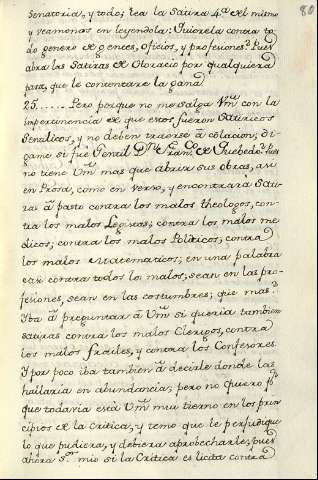 80
Senatoria, y todo; lea la Satira 4ª del mismo
y veamonos en leyendola: Quierela contra to
do genero de gentes, oficios, y profesiones? Pues
abra las Satiras de Oloracio por qualquiera
parte, que le contentare la gana
25...... Pero porque no me salga Vm. con la
impertinencia de que estos fueron Satiricos
Gentilicos, y no deben traerse à colacion; di-
game si fue Gentil Dn. Franco. de Quebedo? Pues
no tiene Vm. mas que abrir sus obras, asi
en Prosa, como en verso, y encontrará Sati-
ras à pasto contra los malos theologos, con-
tra los malos Legistas; contra los malos me
dicos; contra los malos Politicos; contra
los malos Matematicos; en una palabra
casi contra todos los malos; sean en las pro-
fesiones, sean en las costumbres; que mas?
Iba à preguntar à Vm si queria tambien
satiras contra los malos Clerigos, contra
los malos frailes, y contra los Confesores.
Y por poco iba tambien à decirle donde las
hallaria en abundancia; pero no quiero pr.
que todavia está Vm. mui tierno en los prin
cipios de la critica, y temo que le perjudique
lo que pudiera, y debiera aprobecharle; pues
ahora Sr. mio si la Critica es licita contra